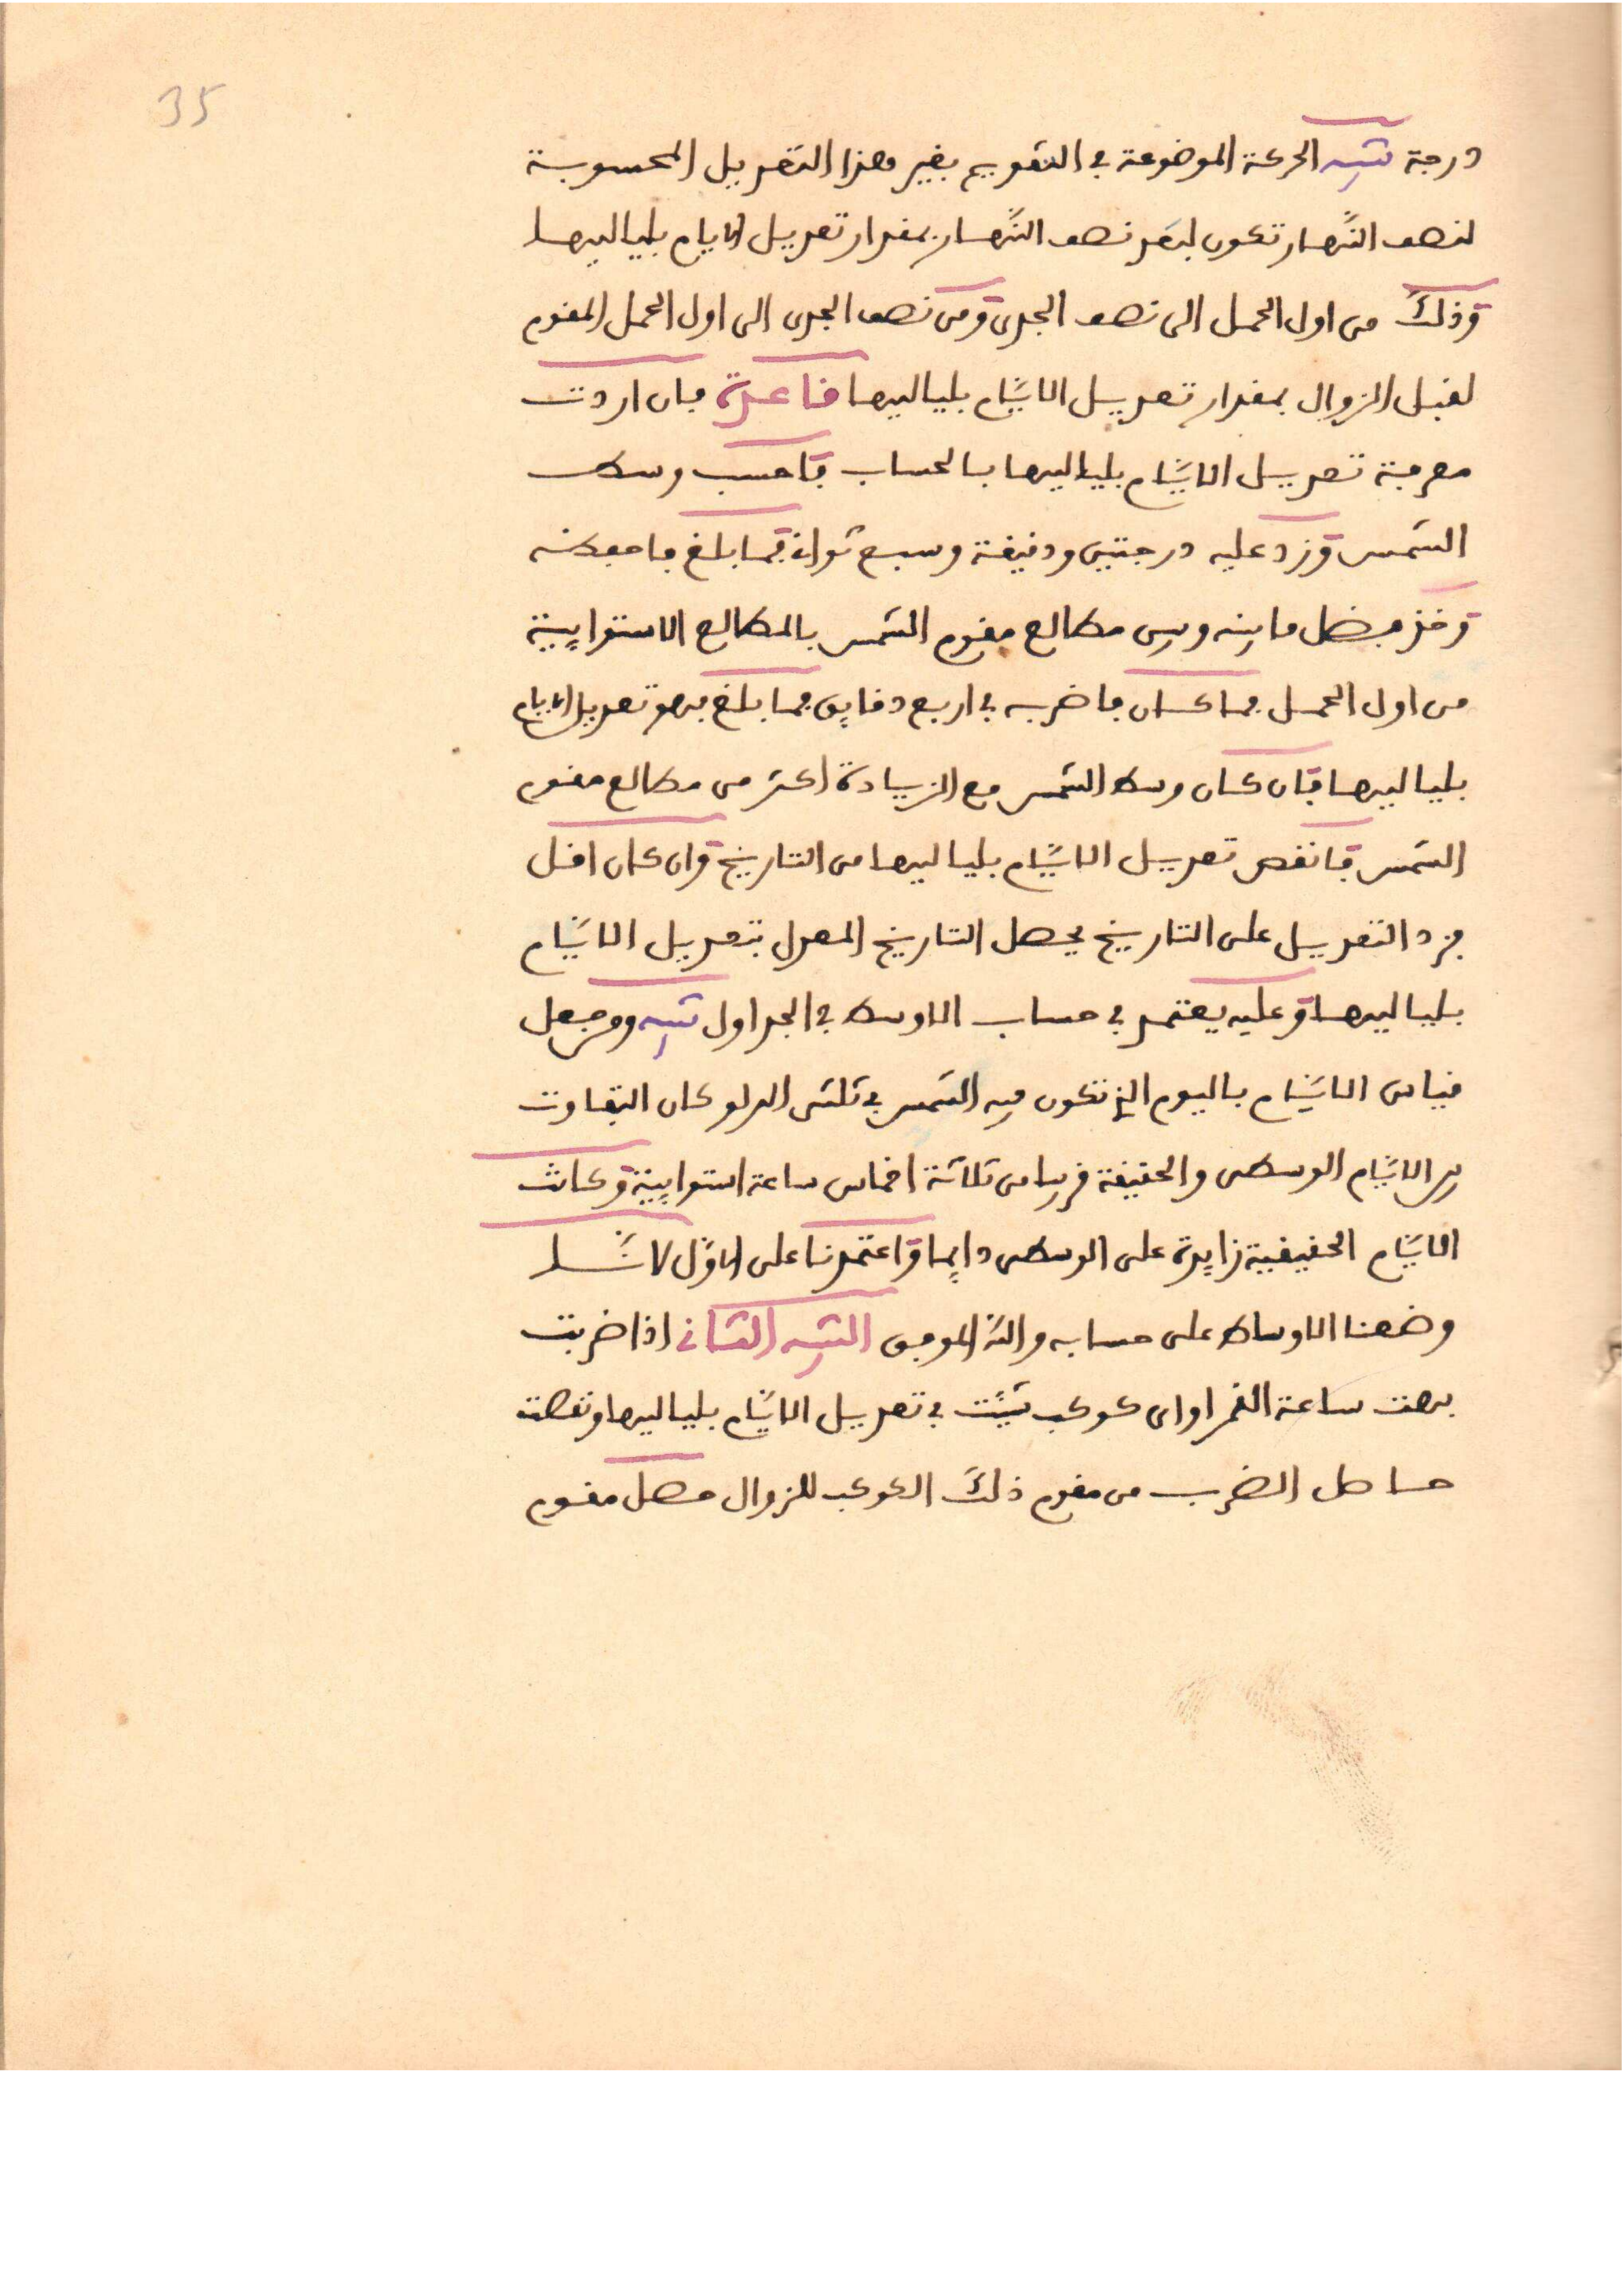 35
درجة تنبيه الحركة الموضوعة في التقويم بغير هذا التعديل المحسوبة
لنصف النهار تكون لبعد نصف النهار بمقدار تعديل الايام بلياليها
وذلك من اول الحمل الى نصف الجدي ومن نصف الجدي الى اول الحمل المقوم
لقبل الزوال بمقدار تعديل الايام بلياليها قاعدة فان اردت
معرفة تعديل الايام بلياليها بالحساب فاحسب وسط
الشمس وزد عليه درجتين ودقيقة وسبع ثوان فما بلغ فاحفظه
وخذ فضل ما بينه وبين مطالع مقوم الشمس بالمطالع الاستوايية
من اول الحمل فما كان فاضربه في اربع دقايق فما بلغ فهو تعديل الايام
بلياليها فان كان وسط الشمس مع الزيادة اكثر من مطالع مقوم
الشمس فانقص تعديل الايام بلياليها من التاريخ وان كان اقل
فزد التعديل على التاريخ يحصل التاريخ المعدل بتعديل الايام
بلياليها وعليه يعتمد في حساب الاوسط في الجداول تنبيه ومن جعل
قياس الايام باليوم الذي تكون فيه الشمس في ثلثي الدلو كان التفاوت
بين الايام الوسطى والحقيقة قريبا من ثلاثة اخماس ساعة استوايية وكانت
الايام الحقيقية زايدة على الوسطى دايما واعتمدنا على الاول لانا
وضعنا الاوساط على حسابه والله الموفق التنبيه الثاني اذا ضربت
بهت ساعة القمر او اي كوكب شيئت في تعديل الايام بلياليها ونقصت
حاصل الضرب من مقوم ذلك الكوكب للزوال حصل مقوم